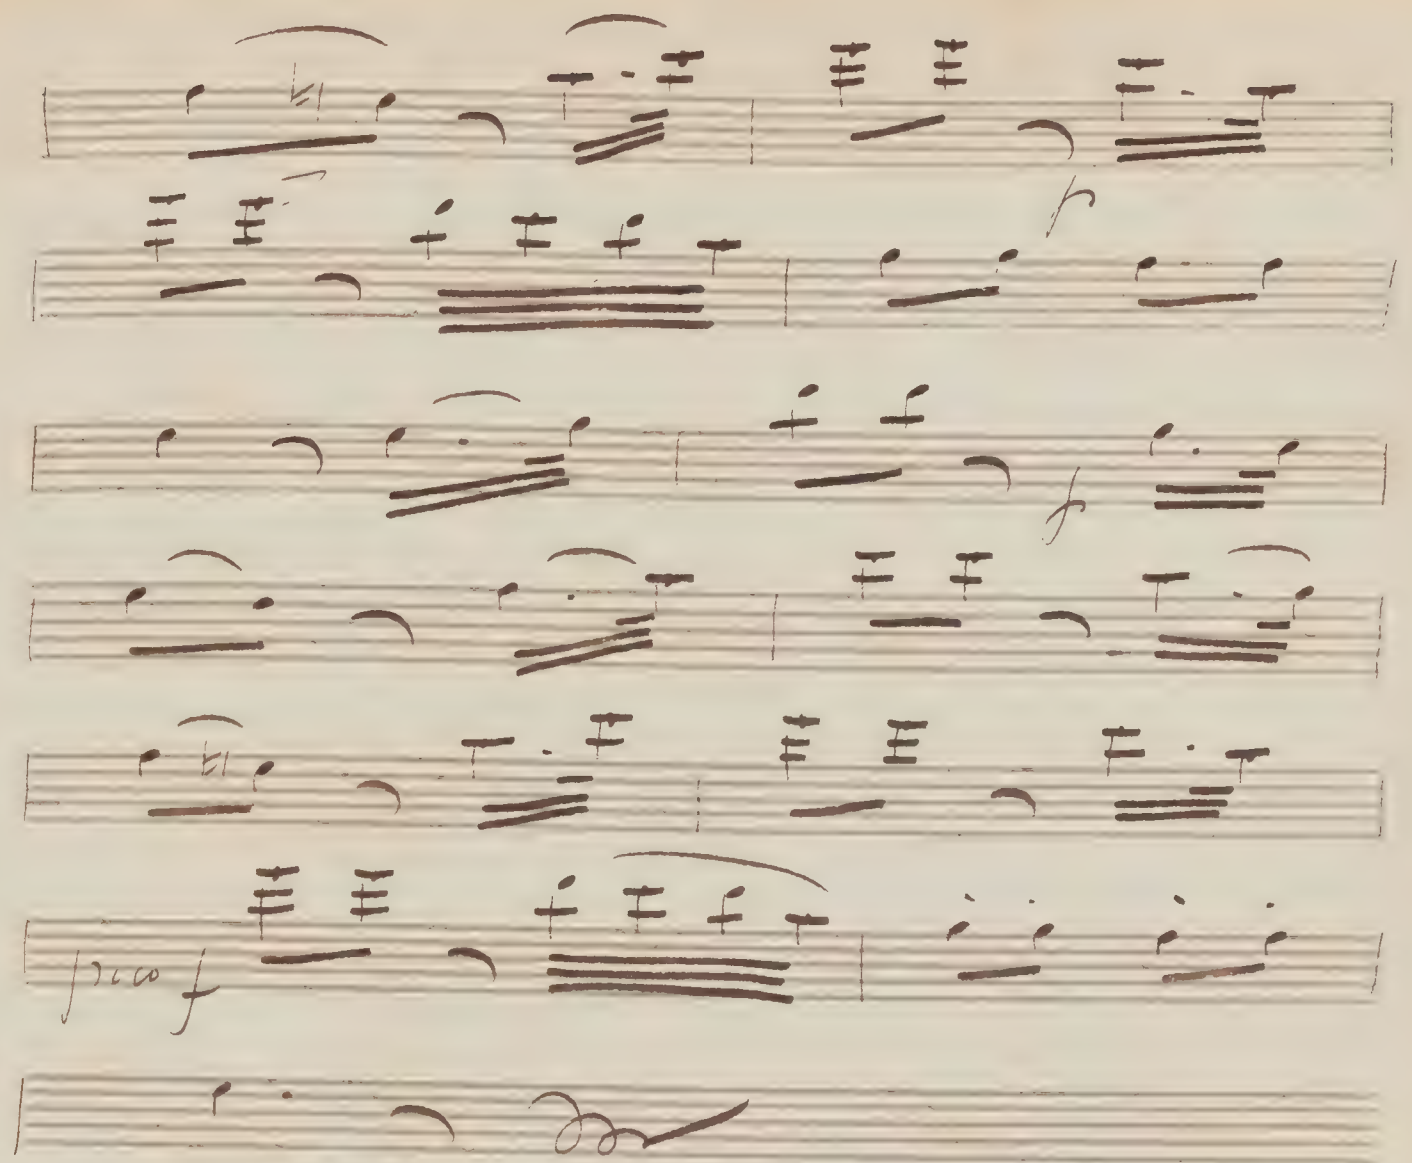 f
f
poco f